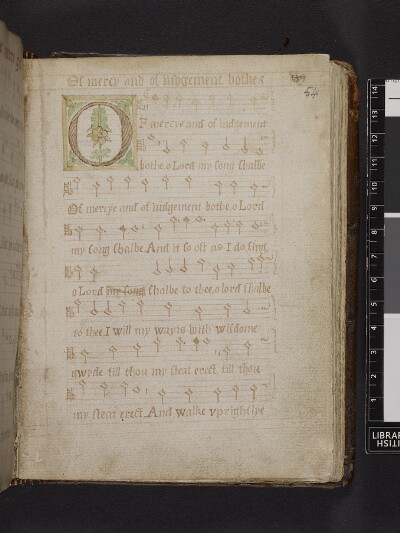 Of mercy and of iudgement bothe
54
O
F mercye and of iudgement
bothe o Lord my song shalbe
Of mercye and of iudgement bothe o Lord
my song shalbe And it so oft as I do sing
o Lord my song shalbe to thee, o lord shalbe
to thee. I will my wayes with wisdome
gwyde till thou my steat erect, till thou
my steat erect. And walke vprightlye
14
13
12
11
10
9
8
7
6
5
4
3
2
1
LIBRAR